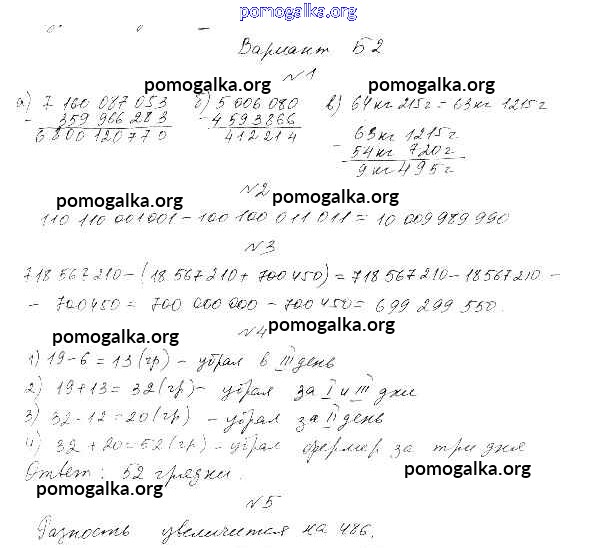 pomogalka.org
Вариант Б2
№1
pomogalka.org pomogalka.org
а) 7 160 087 053 б) 5 006 080 в) 64 кг 215 г = 63 кг 1215 г
- 359 966 283 - 4 593 866 63 кг 1215 г
6 800 120 770 412 214 - 54 кг 720 г
9 кг 495 г
pomogalka.org №2 pomogalka.org
110 110 001 001 - 100 100 011 011 = 10 009 989 990
№3
718 567 210 - (18 567 210 + 700 450) = 718 567 210 - 18 567 210 -
- 700 450 = 700 000 000 - 700 450 = 699 299 550.
pomogalka.org №4 pomogalka.org
1) 19 - 6 = 13 (гр) - убрал в III день
2) 19 + 13 = 32 (гр) - убрал за I и III дни
3) 32 - 12 = 20 (гр) - убрал за II день
4) 32 + 20 = 52 (гр) - убрал фермер за три дня
Ответ: 52 грядки. pomogalka.org
pomogalka.org №5
Разность увеличится на 486.
pomogalka.org